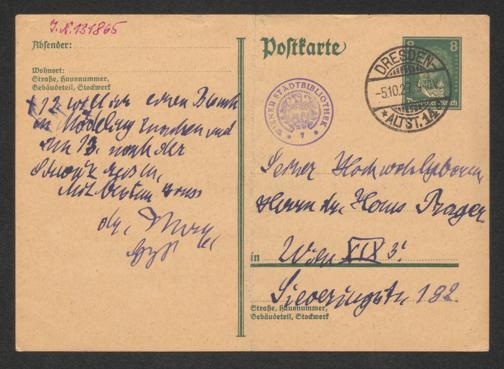 J.N. 131865
Absender:
Wohnort:
Straße, Hausnummer,
Gebäudeteil, Stockwerk
12. will ich einen Besuch
in Mödling machen und
am 13. nach der
Schweiz reisen.
Mit besten Gruss
Postkarte
8 8
Deutsches Reich
DRESDEN-
-5.10.29
ALTST. 1
WIENER STADTBIBLIOTHEK
Seiner Hochwohlgeboren
Herrn Dr. Hans Prager
in Wien XIX 5.
Sieveringstr 192.
Straße, Hausnummer,
Gebäudeteil, Stockwerk